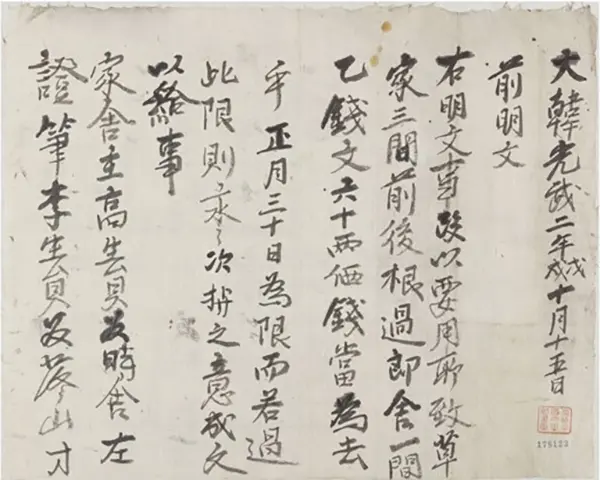 大韓光武二年戊戌十月十五日
前明文
右明文事段以要用所致草
家三間前後根過郎舍一間
乙錢文六十兩価錢當為去
乎正月三十日為限而若過
此限則永〻次之意成文
以給事
家舍主高生員時舍左
證筆李生員山寸
175123